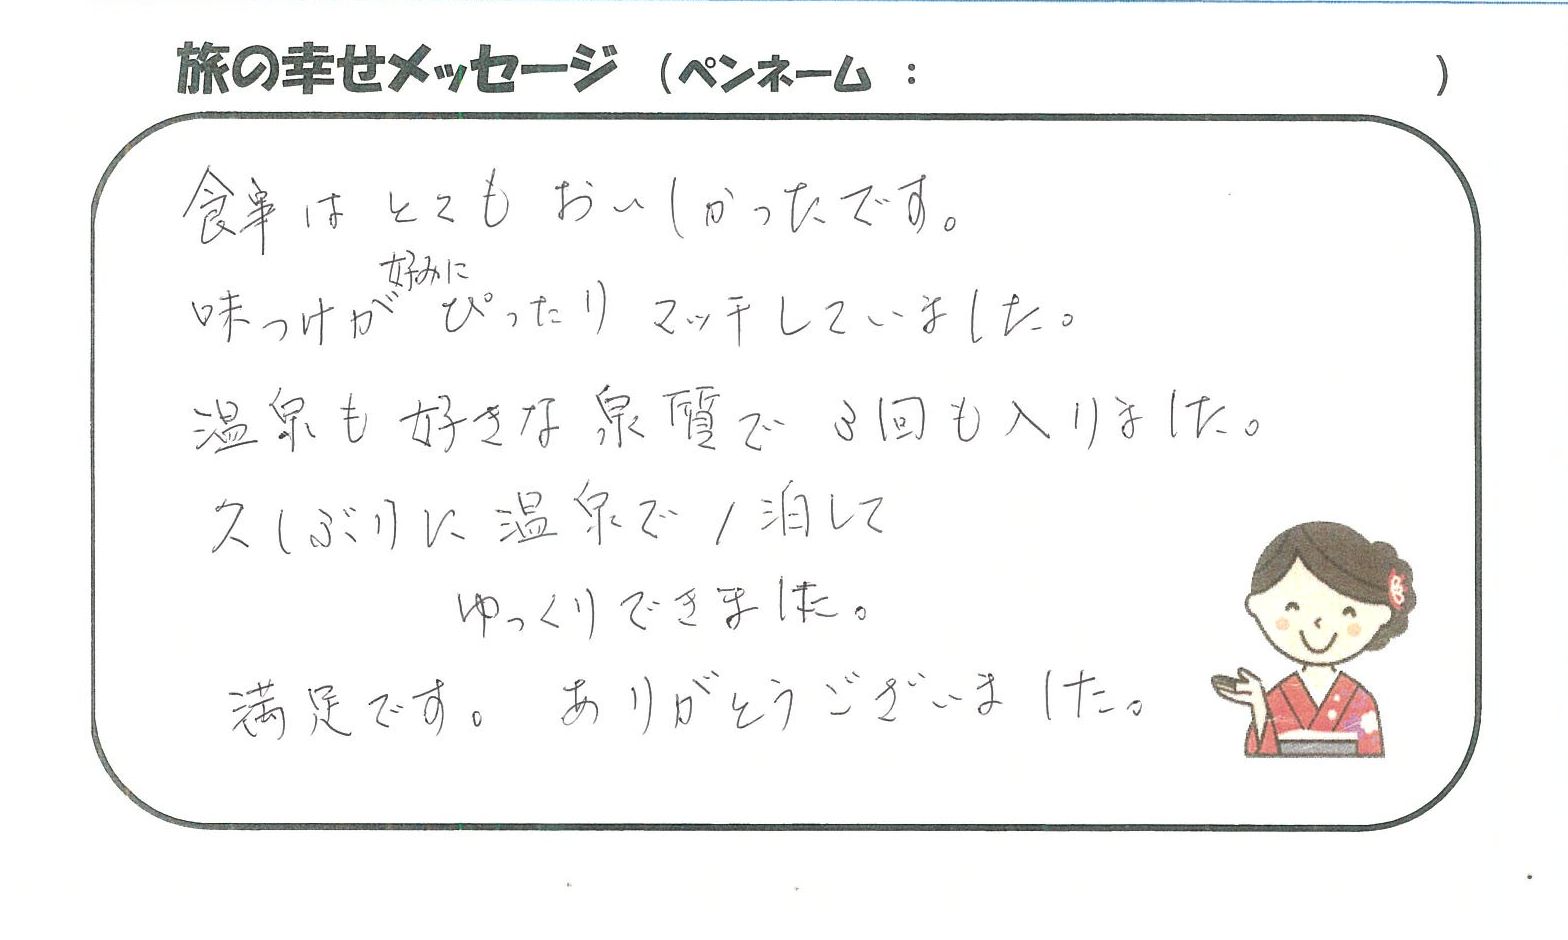 旅の幸せメッセージ （ペンネーム ： ）
食事は とても おいしかったです。
味つけが好みにぴったり マッチしていました。
温泉も好きな泉質で 3回も入りました。
久しぶりに温泉で1泊して
ゆっくりできました。
満足です。 ありがとうございました。